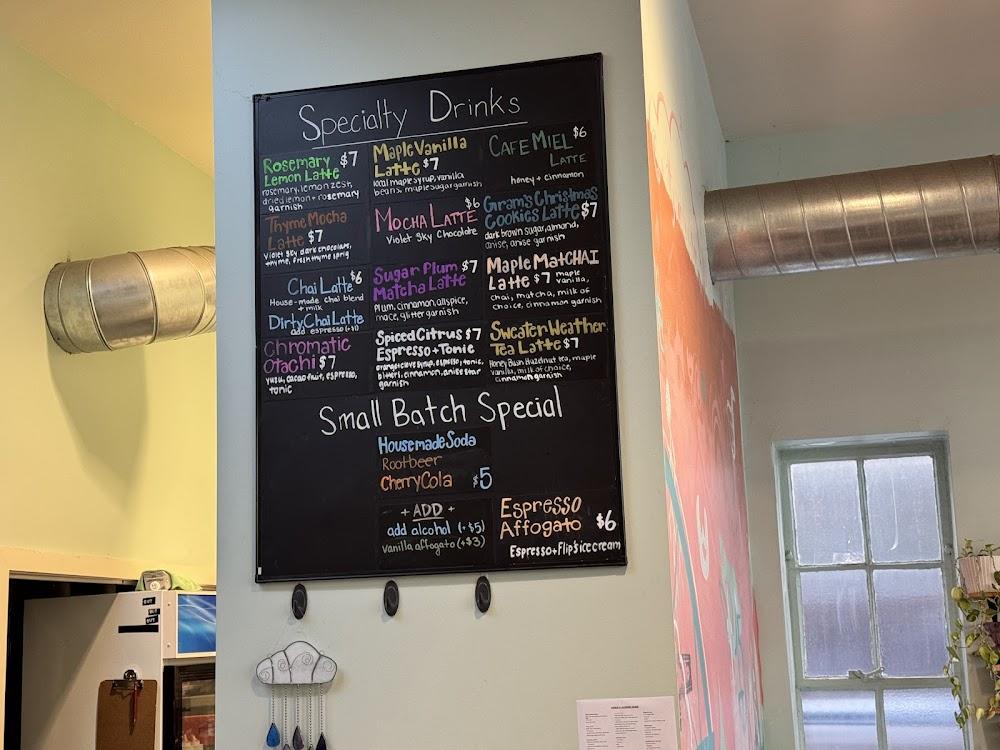 Specialty Drinks
Rosemary $7
Lemon Latte
rosemary, lemon zest,
dried lemon + rosemary
garnish
Maple Vanilla
Latte $7
local maple syrup, vanilla
beans, maple sugar garnish
CAFE MIEL $6
LATTE
honey + cinnamon
Thyme Mocha
Latte $7
Violet Sky dark chocolate,
thyme, fresh thyme sprig
$6
MOCHA LATTE
Violet Sky Chocolate
Gram's Christmas
Cookies Latte $7
dark brown sugar, almond,
anise, anise garnish
Chai Latte $6
House-made chai blend
+ milk
Dirty Chai Latte
add espresso (+$1)
Sugar Plum $7
Matcha Latte
plum, cinnamon, allspice,
mace, glitter garnish
Maple MatCHAI
Latte $7 maple
vanilla,
chai, matcha, milk of
choice, cinnamon garnish
Chromatic
Otachi $7
yuzu, cacao fruit, espresso,
tonic
Spiced Citrus $7
Espresso + Tonic
orange clove syrup, espresso, tonic,
bitters, cinnamon, anise star
garnish
Sweater Weather
Tea Latte $7
Honey Bush Hazelnut tea, maple
vanilla, milk of choice,
cinnamon garnish
Small Batch Special
Housemade Soda
Rootbeer
Cherry Cola $5
+ ADD +
add alcohol (+$5)
vanilla affogato (+$3)
Espresso
Affogato $6
Espresso + Flip's ice cream